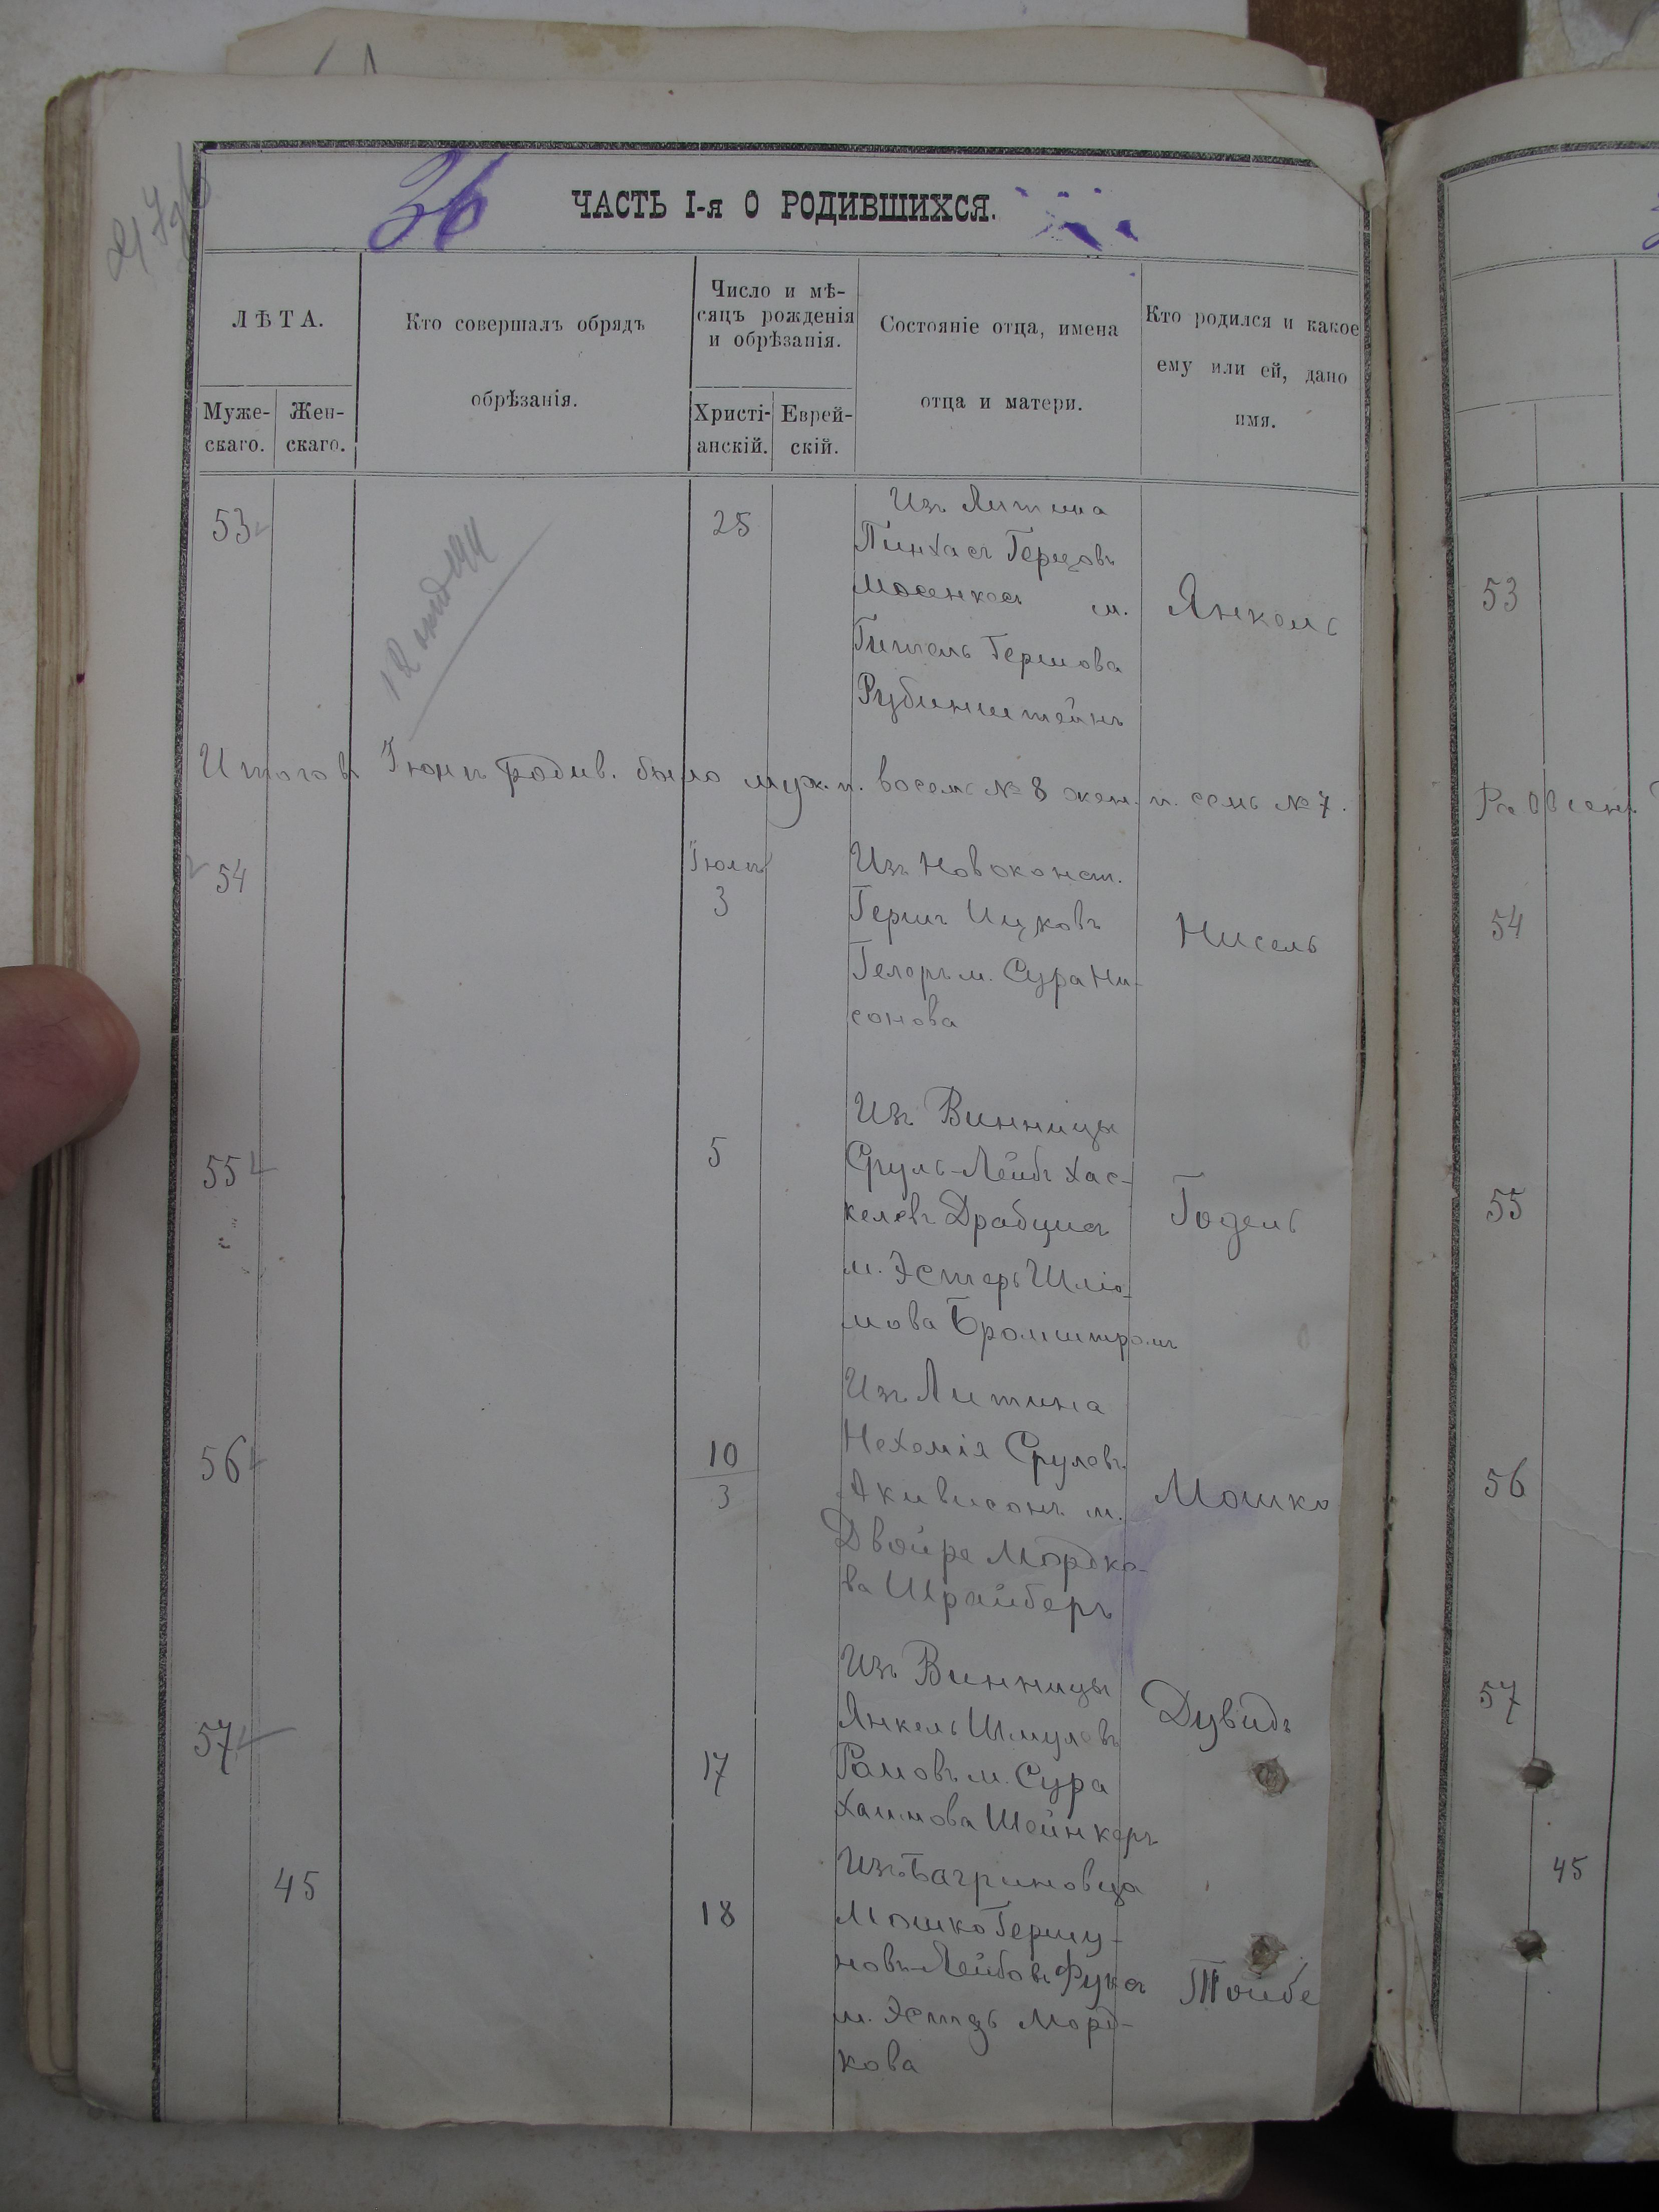 36
ЧАСТЬ I-я О РОДИВШИХСЯ.
ЛѢТА.
Муже-
скаго.
Жен-
скаго.
Кто совершалъ обрядъ
обрѣзанія.
Число и мѣ-
сяцъ рожденія
и обрѣзанія.
Христі-
анскій.
Еврей-
скій.
Состояніе отца, имена
отца и матери.
Кто родился и какое
ему или ей, дано
имя.
53
25
Изъ Литина
Пинхасъ Герцовъ
м.
Гитель Гершова
Рубинштейнъ
Янкель
Итого въ Іюнѣ родив. было муж. п. восемь № 8 жен. п. семь № 7.
54
Іюль
3
Изъ Новоконст.
Гершъ Ицковъ
Гелеръ м. Сура Ни-
сонова
Нисель
55
5
Изъ Винницы
Сруль-Лейбъ Хас-
келевъ Драбцисъ
м. Эстеръ Шліо-
мова Бромштромъ
Годель
56
10
3
Изъ Литина
Нехемія Срулевъ
Акивисонъ м.
Двойра Мордко-
ва Шрайберъ
Мошко
57
17
Изъ Винницы
Янкель Шмулевъ
Рамовъ м. Сура
Хаимова Шейнкеръ
Дувидъ
45
18
Изъ Багриновца
Мошко Гершу-
новъ-Лейбовъ Фуксъ
м. Эстзь Морд-
кова
Тойбе
53
54
55
56
57
45